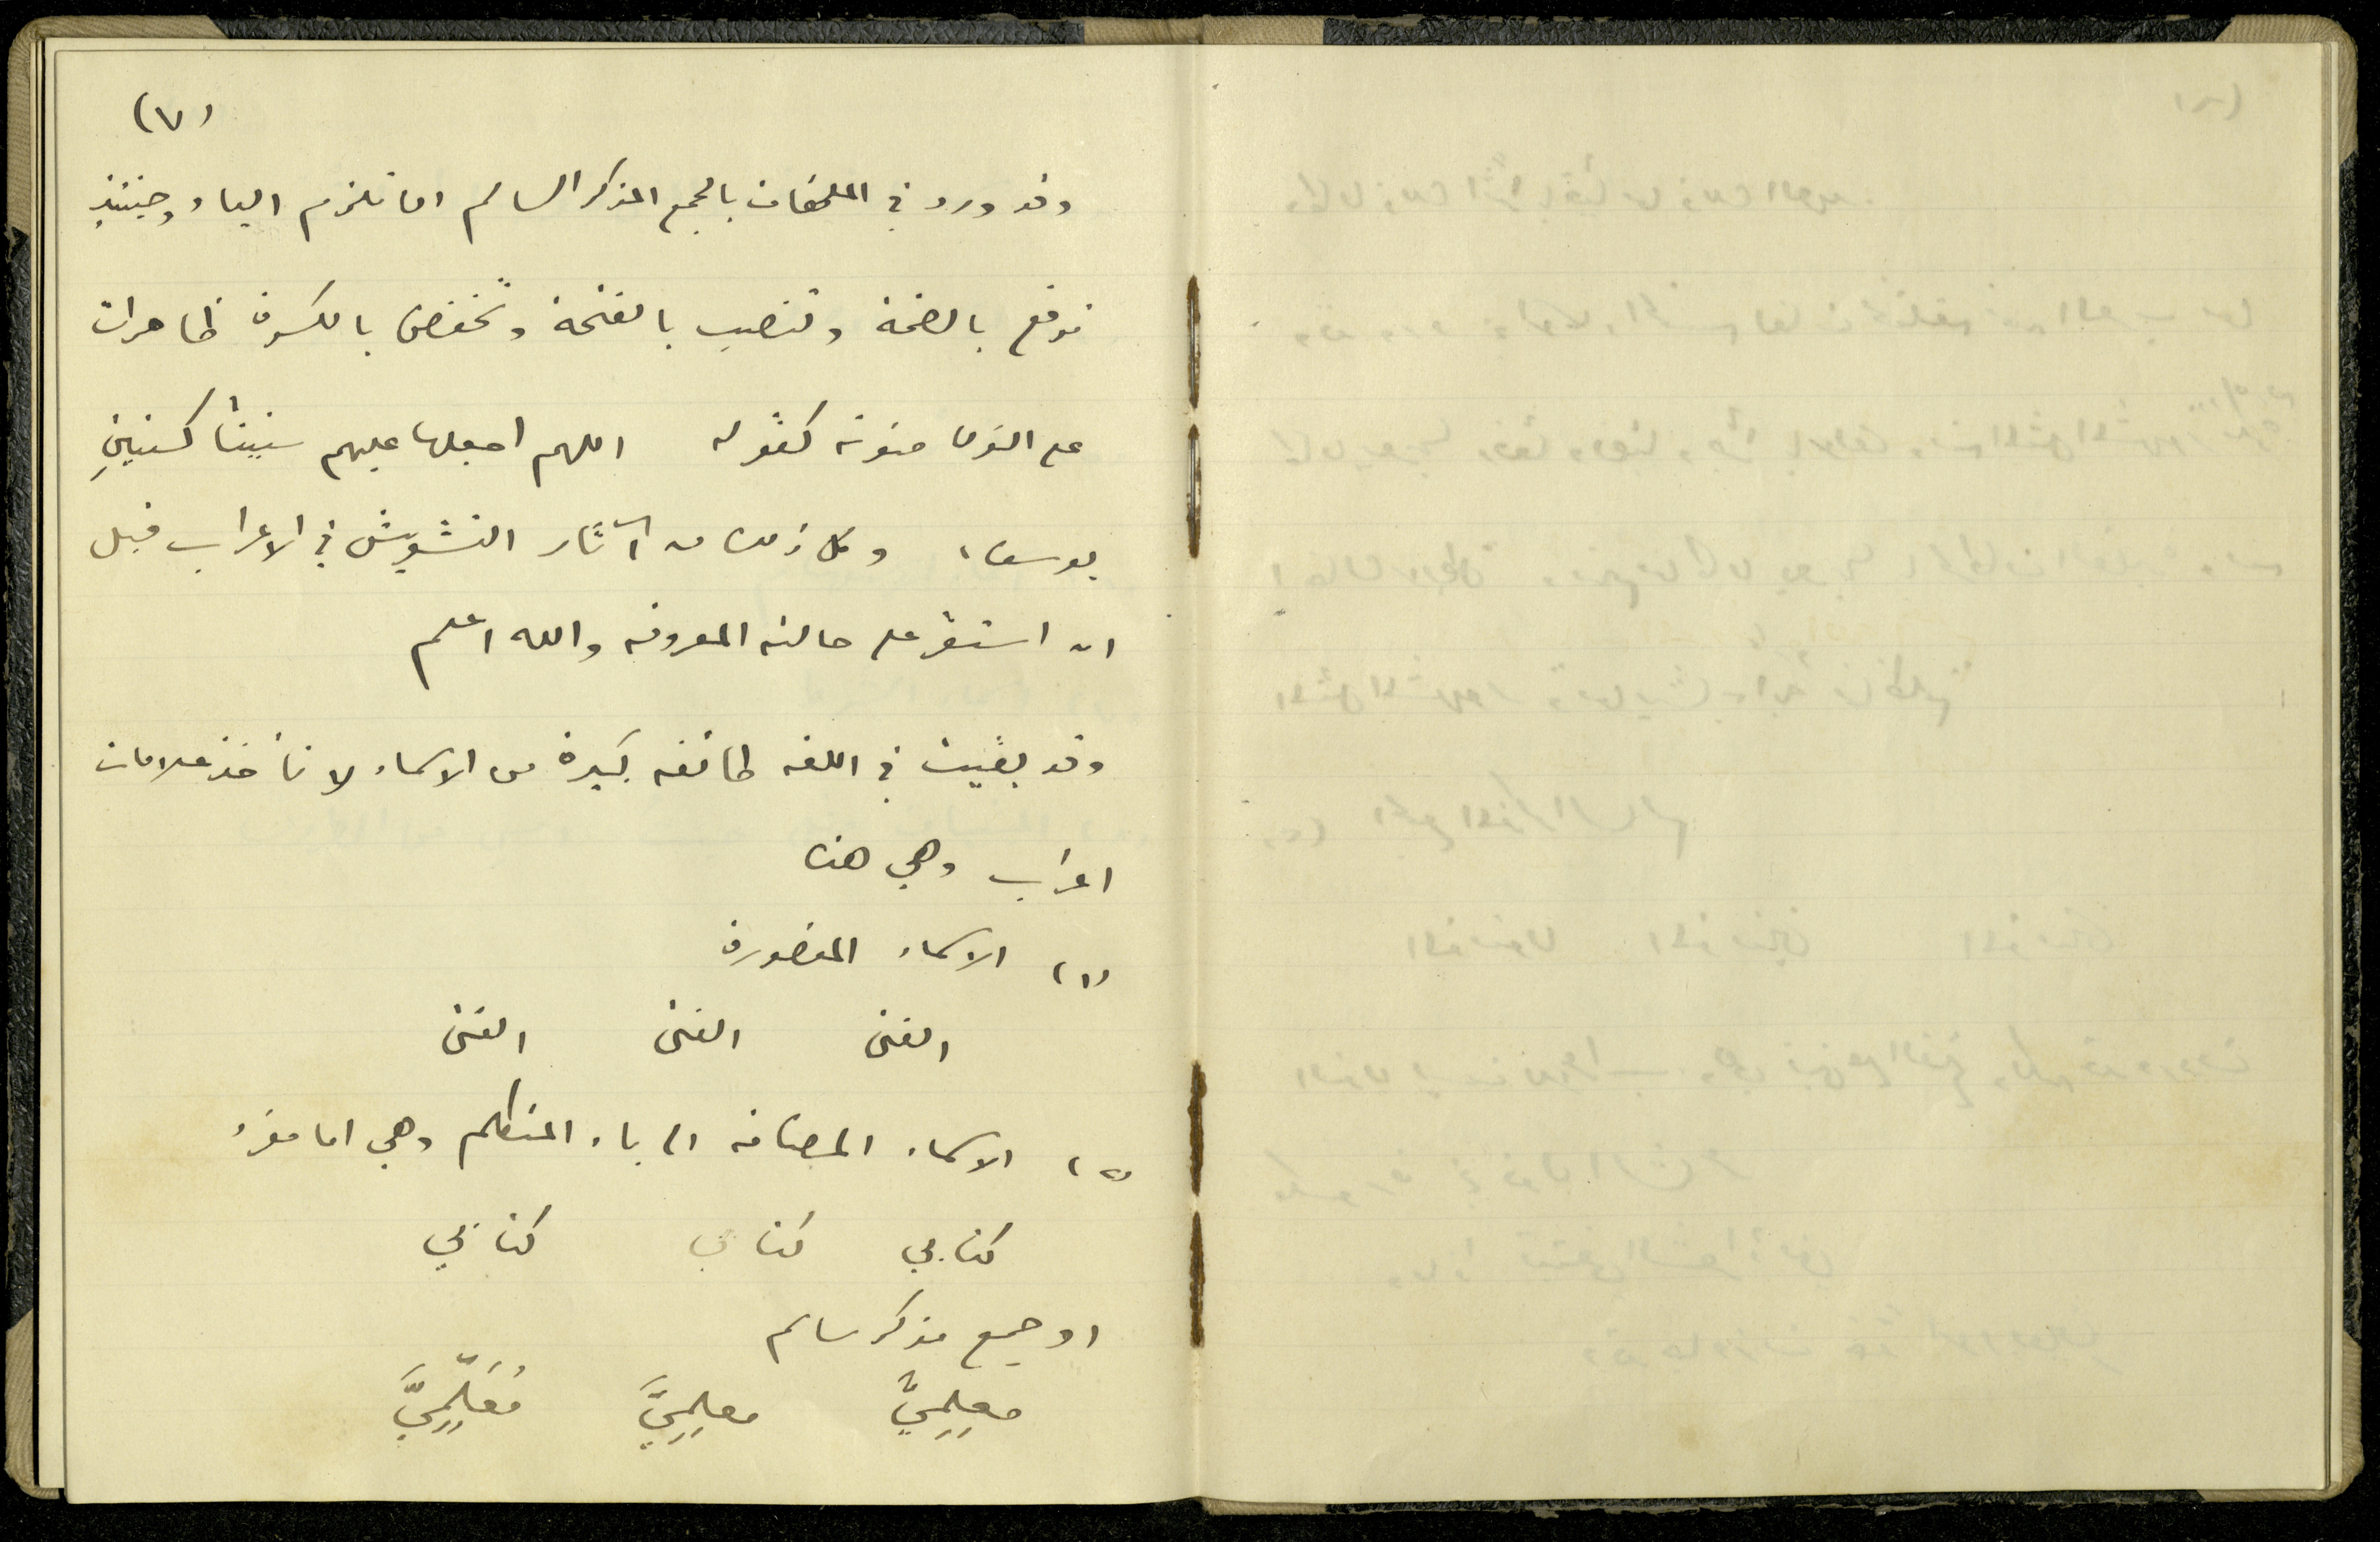 (٧)
وقد ورد في الملحقات بالجمع المذكر السالم انها تلزم الياء وحينئذٍ
ترفع بالضمة وتنصب بالفتحة وتخفض بالكسرة ظاهرات
على النون منونة كقوله اللهم اجعلها عليهم سنيناً كسنينِ
يوسف، وكل ذلك من آثار التشويش في الاعراب قبل
ان استقر على حالته المعروفه والله اعلم
وقد بقيت في اللغه طائفه كبيرة من الاسماء لا تأخذ علامات
اعراب وهي هذه
(١) الاسماء المقصورة
الفتى الفتى الفتى
(٢) الاسماء المضافه الى ياء المتكلم وهي اما مفرد
كتابي كتابي كتابي
او جمع مذكر سالم
معلِمِيَّ معلِمِيَّ مُعَلِّمِيَّ